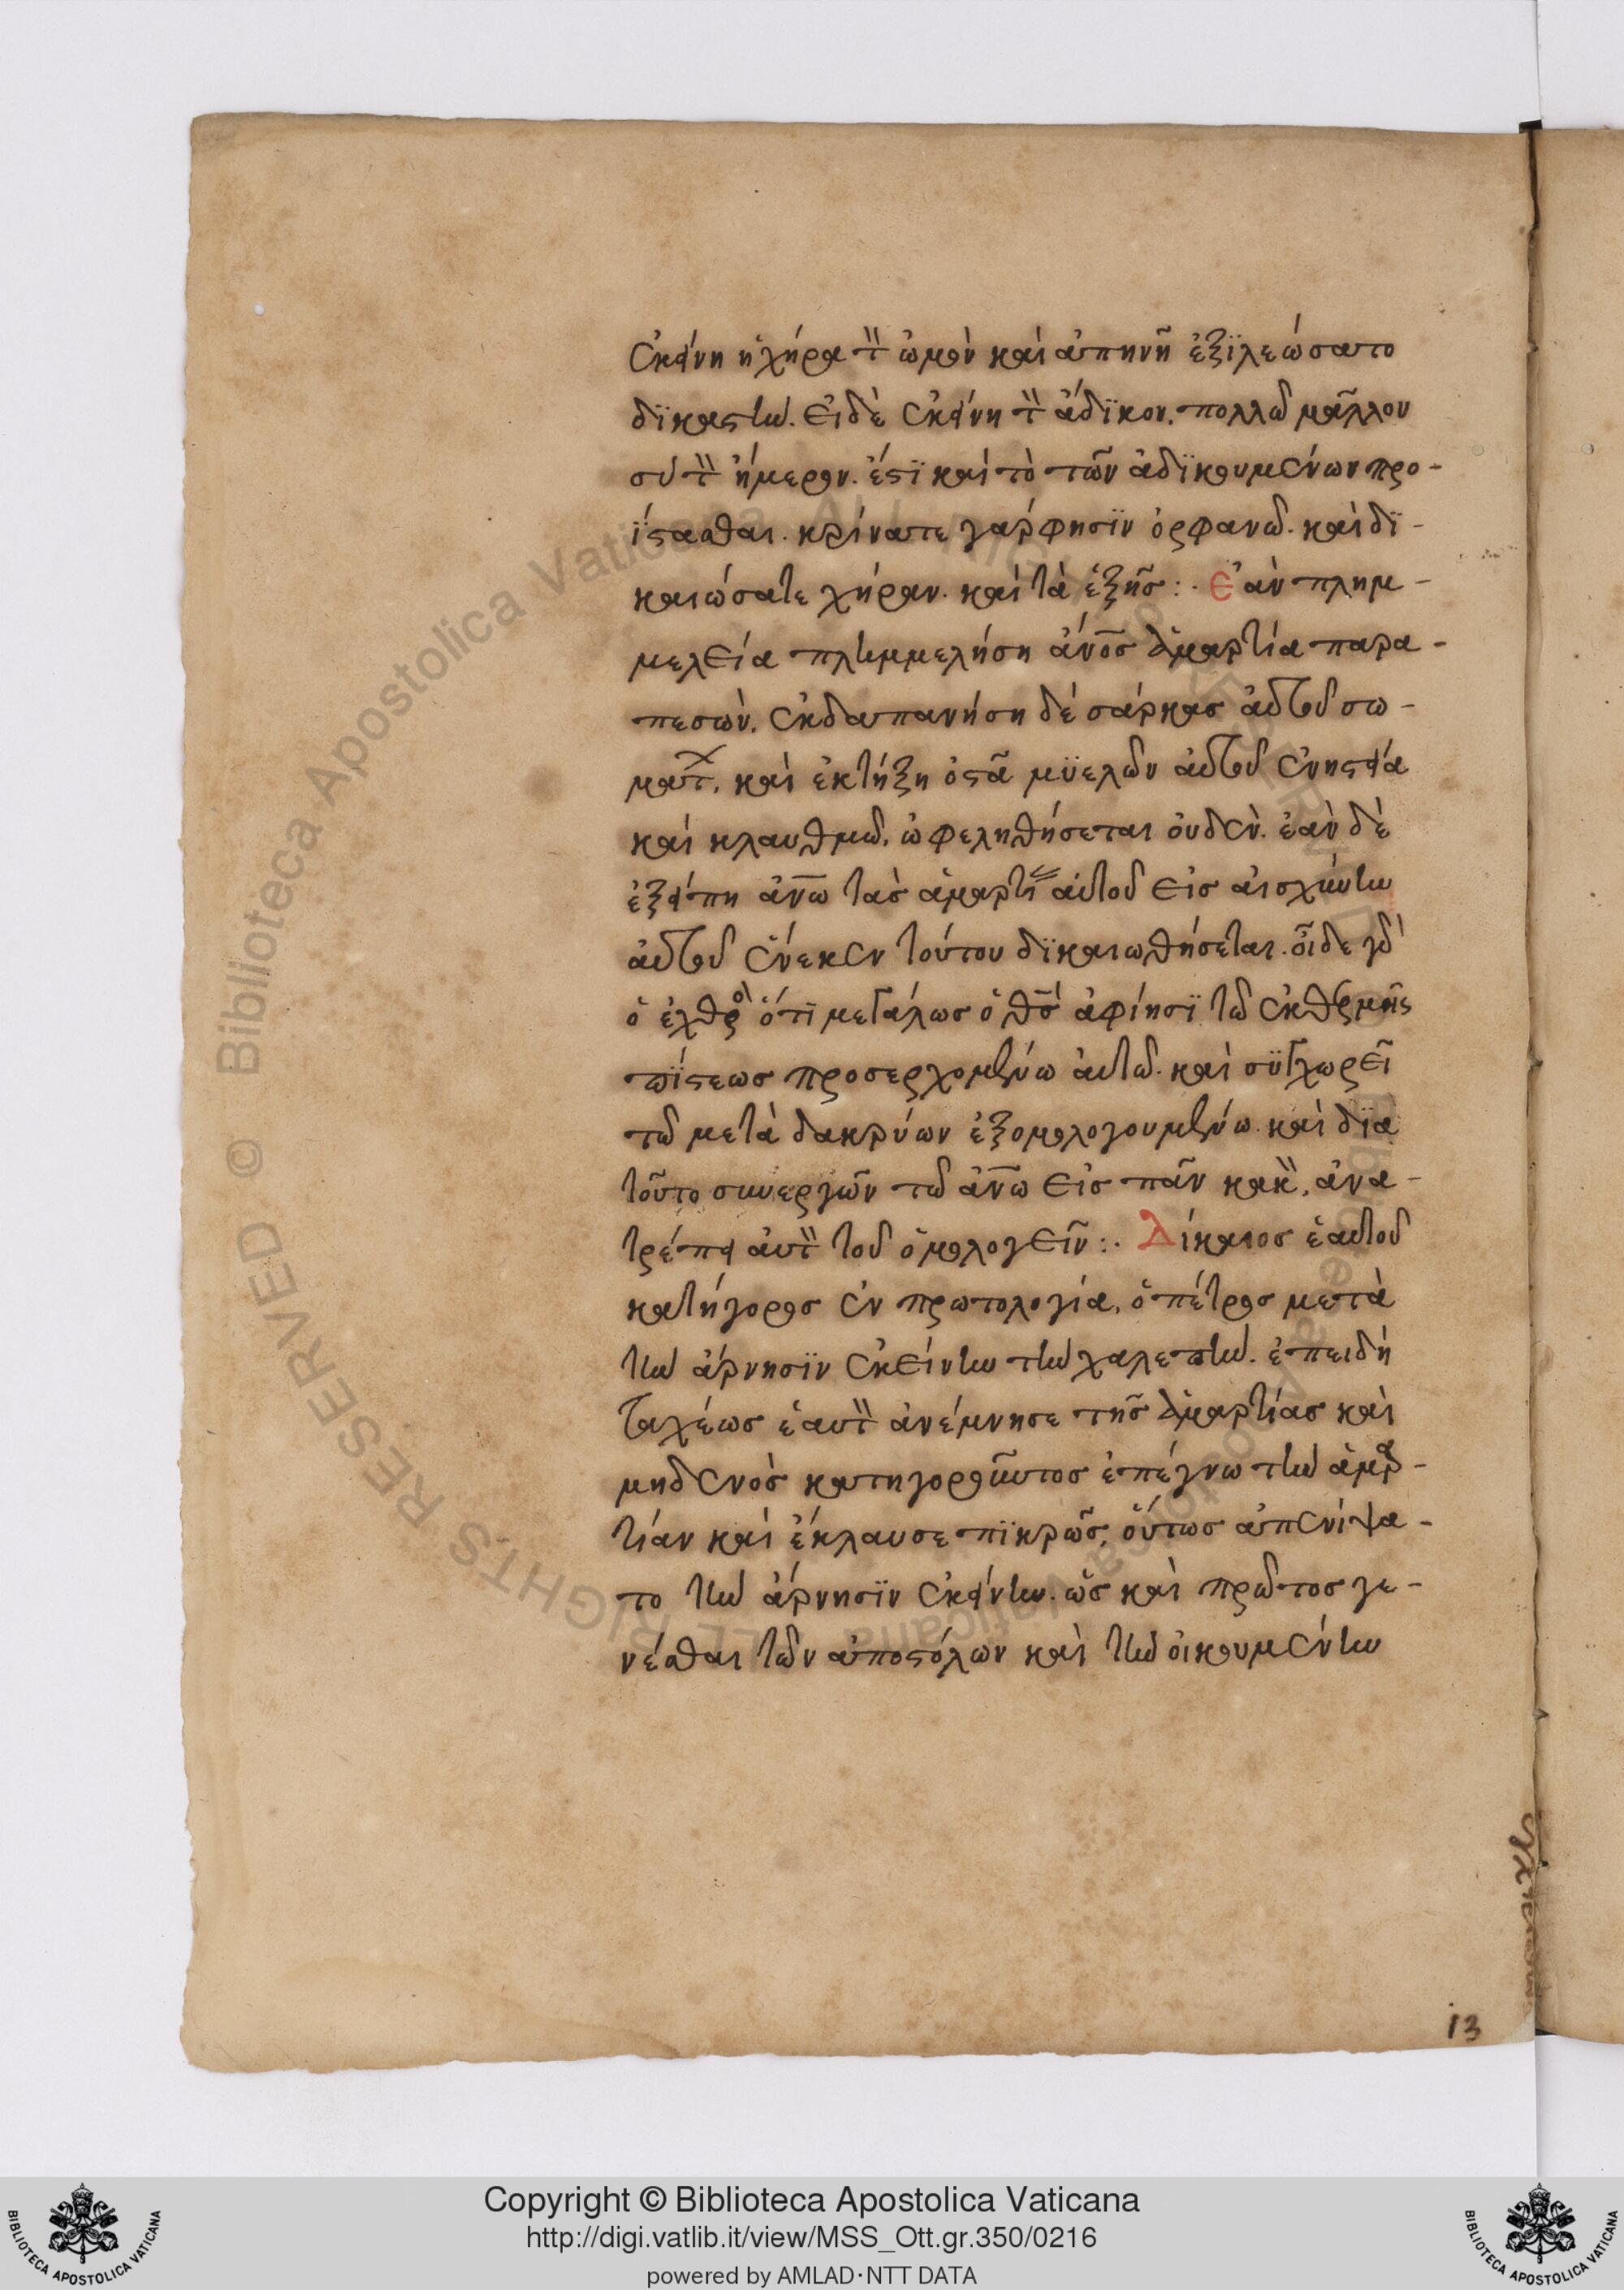 ἐκείνη ἡ χήρα τὸν ὠμὸν καὶ ἀπηνῆ ἐξϊλεώσατο
δϊκαστὴν. εἰ δὲ ἐκείνη τὸν ἄδϊκον. πολλῶ μᾶλλον
σὺ τὸν ἥμερον. ἔστϊ καὶ τὸ τῶν ἀδϊκουμένων προ-
ΐστασθαι. κρίνατε γάρ φησϊν ὀρφανῶ. καὶ δϊ-
καιώσατε χήραν. καὶ τὰ ἑξῆς :· Ἐὰν πλημ-
μελεία πλημμελήση ἄνος ἁμαρτία παρα-
πεσὼν. ἐκδαπανήση δέ σάρκας αὐτοῦ σω-
ματ. καὶ ἐκτήξη ὀστᾶ μϋελῶν αὐτοῦ ἐν νηστεία
καὶ κλαυθμῶ. ὠφεληθήσεται οὐδὲν. ἐὰν δὲ
ἐξείπη ἀνω τὰς ἁμαρτί αὐτοῦ εἰς αἰσχύνην
αὐτοῦ ἕνεκεν τούτου δϊκαιωθήσεται. οἶδε γὰρ
ὁ ἐχθρὸ ὅτϊ μεγάλως ὁ θς ἀφίησϊ τῶ ἐκ θερμῆς
πίστεως προσερχομένω αὐτῶ. καὶ σϋγχωρεῖ
τῶ μετὰ δακρύων ἐξομολογουμένω. καὶ δϊα
τοῦτο συνεργῶν τῶ ἀνω εἰς πᾶν κακὸν, ἀνα-
τρέπει αὐτὸν τοῦ ὁμολογεῖν :· Δίκαιος ἑαυτοῦ
κατήγορος ἐν πρωτολογία, ὁ πέτρος μετὰ
τὴν ἄρνησϊν ἐκείνην τὴν χαλεπὴν. ἐπειδὴ
ταχέως ἑαυτὸν ἀνέμνησε τῆς ἁμαρτίας καὶ
μηδενὸς κατηγοροῦντος ἐπέγνω τὴν ἁμαρ-
τίαν καὶ ἔκλαυσε πϊκρῶς, οὕτως ἀπενίψα-
το τὴν ἄρνησϊν ἐκείνην. ὡς καὶ πρῶτος γε-
νέσθαι τῶν ἀποστόλων καὶ τὴν οἰκουμένην
13
Copyright © Biblioteca Apostolica Vaticana
http://digi.vatlib.it/view/MSS_Ott.gr.350/0216
powered by AMLAD·NTT DATA
BIBLIOTECA APOSTOLICA VATICANA
BIBLIOTECA APOSTOLICA VATICANA